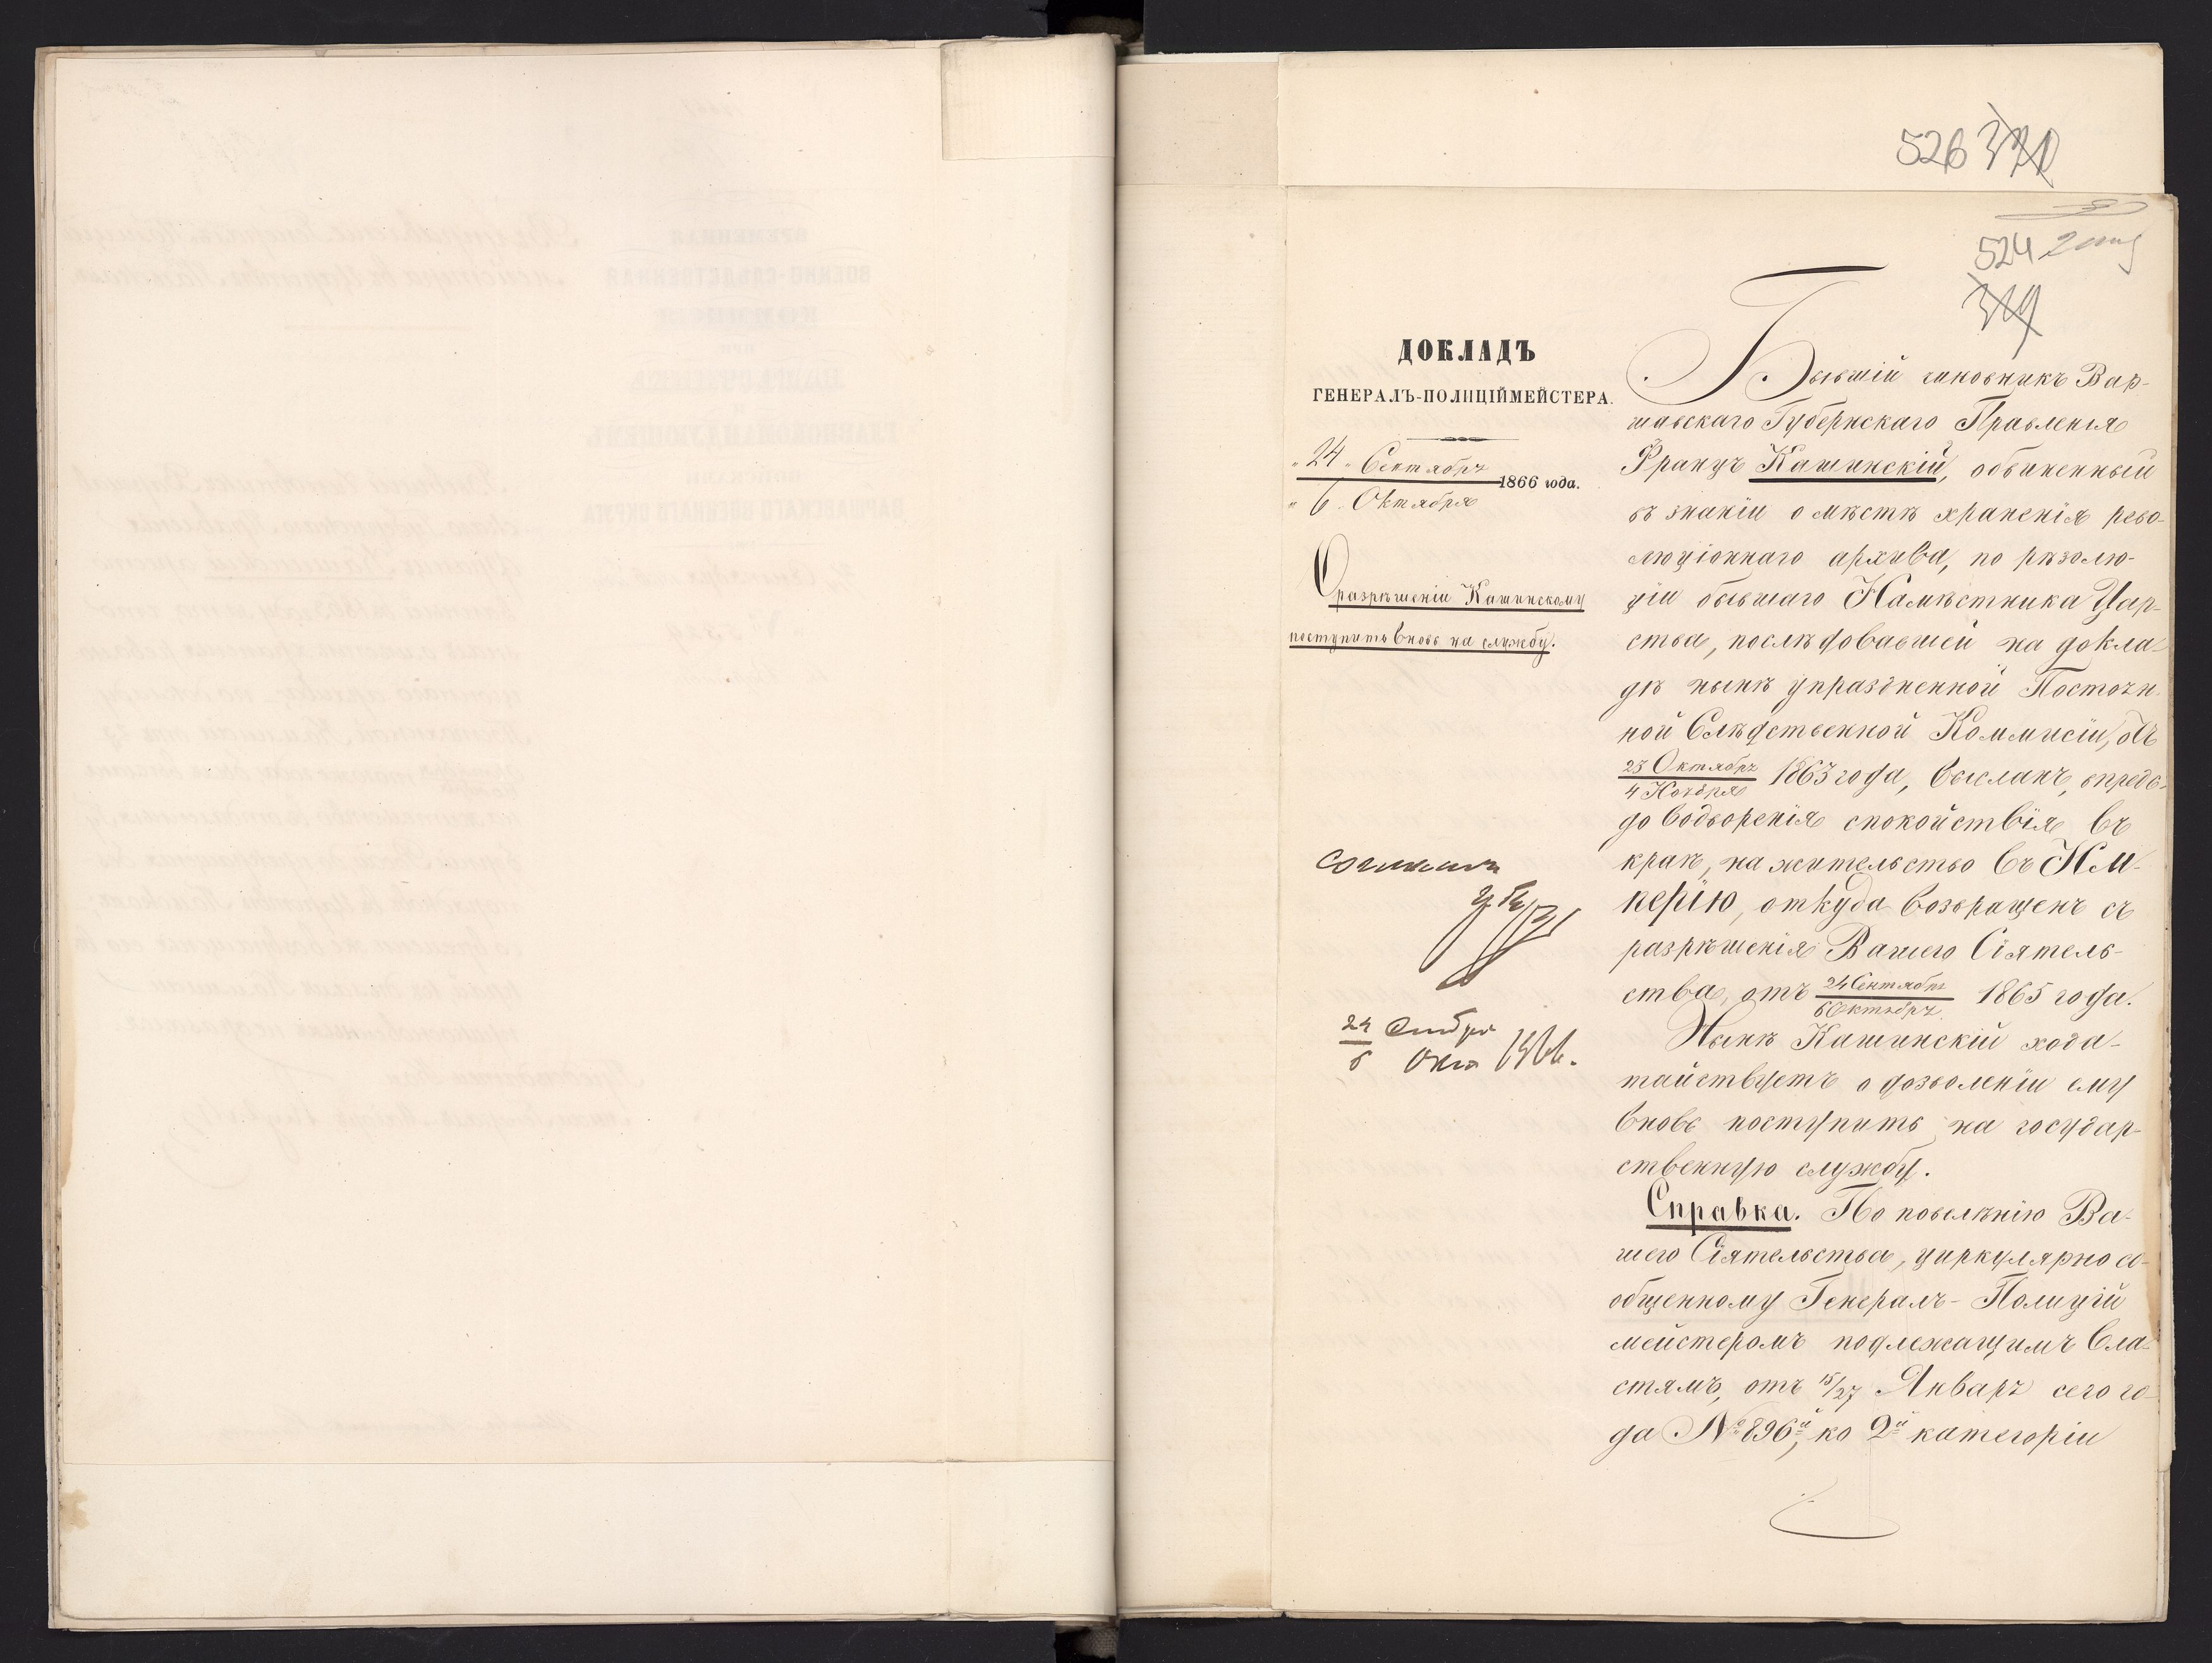 526 320
524
319
ДОКЛАДЪ
ГЕНЕРАЛЪ-ПОЛИЦІЙМЕЙСТЕРА.
„24„ Сентября
1866 года.
„6„ Октября
О разрѣшеніи Кашинскому
поступить вновь на службу.
Согласенъ
24 Сентября
6 Окт 1866.
Бывшій чиновникъ Вар-
шавскаго Губернскаго Правленія
Францъ Кашинскій, обвиненный
въ знаніи о мѣстѣ храненія рево-
люціоннаго архива, по рѣзолю-
ціи бывшаго Намѣстника Цар-
ства, послѣдовавшей на докла-
дѣ нынѣ упраздненной Постоян-
ной Слѣдственной Коммисіи, отъ
23 Октября
4 Ноября 1863 года, высланъ, впредь
до водворенія спокойствія въ
краѣ, на жительство въ Им-
перію, откуда возвращенъ съ
разрѣшенія Вашего Сіятель-
ства, отъ 24 Сентября
6 Октября 1865 года.
Нынѣ Кашинскій хода-
тайствуетъ о дозволеніи ему
вновь поступить на государ-
ственную службу.
Справка. По повелѣнію Ва-
шего Сіятельства, циркулярно со-
общенному Генералъ-Полицій
мейстеромъ подлежащимъ вла-
стямъ, отъ 15/27 Января сего го-
да № 896й, ко 2й категоріи